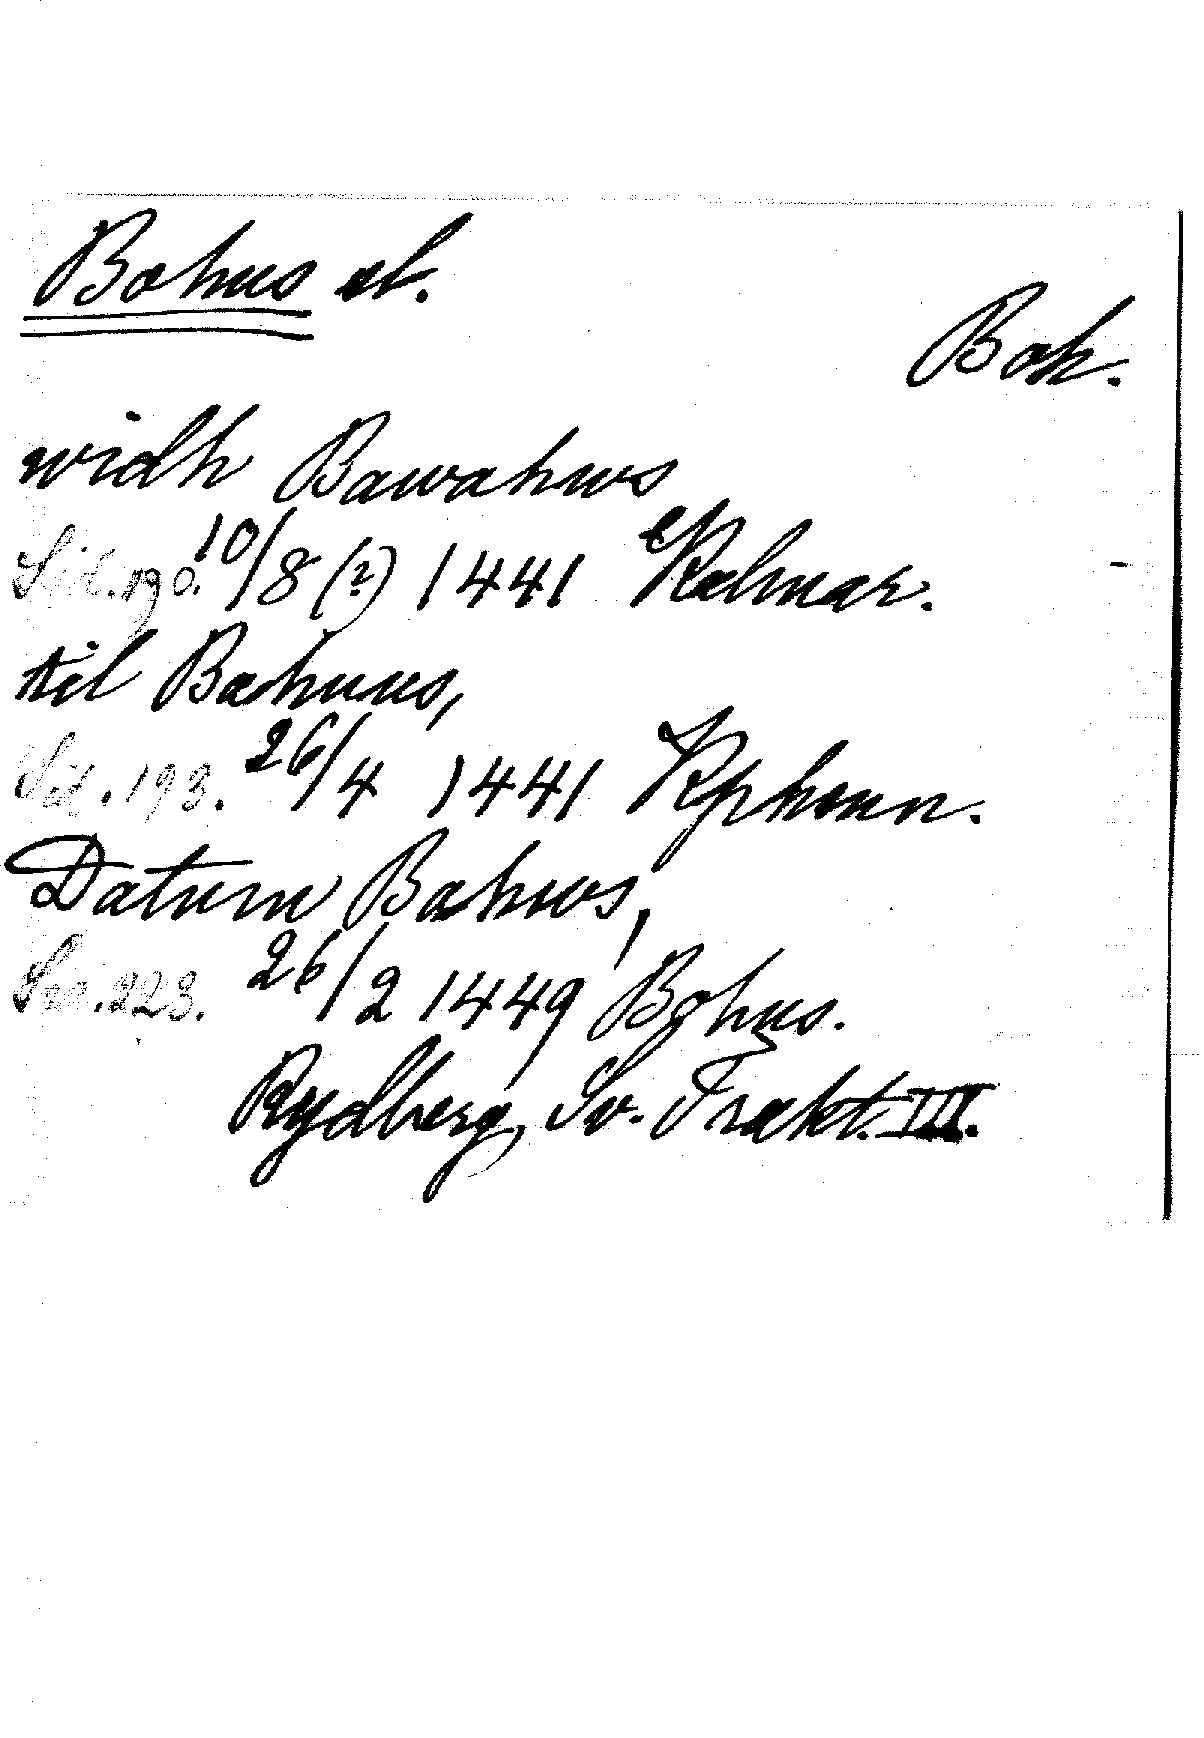 Bohus sl.
Boh.
widh Bawahws
Sid. 190. 10/8 (?) 1441 Kalmar.
til Bahuus,
Sid. 193. 26/4 1441 Kphamn.
Datum Bahws,
Sid. 223. 26/2 1449 Bohus.
Rydberg, Sv. Trakt. III.